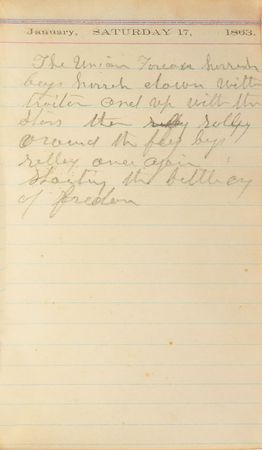 January, SATURDAY 17, 1863.
The Union Forever hurrah
boys hurrah down with
traitor and up with the
stars then rolley
around the flag boys
relley once again
shouting the battle cry
of freedom